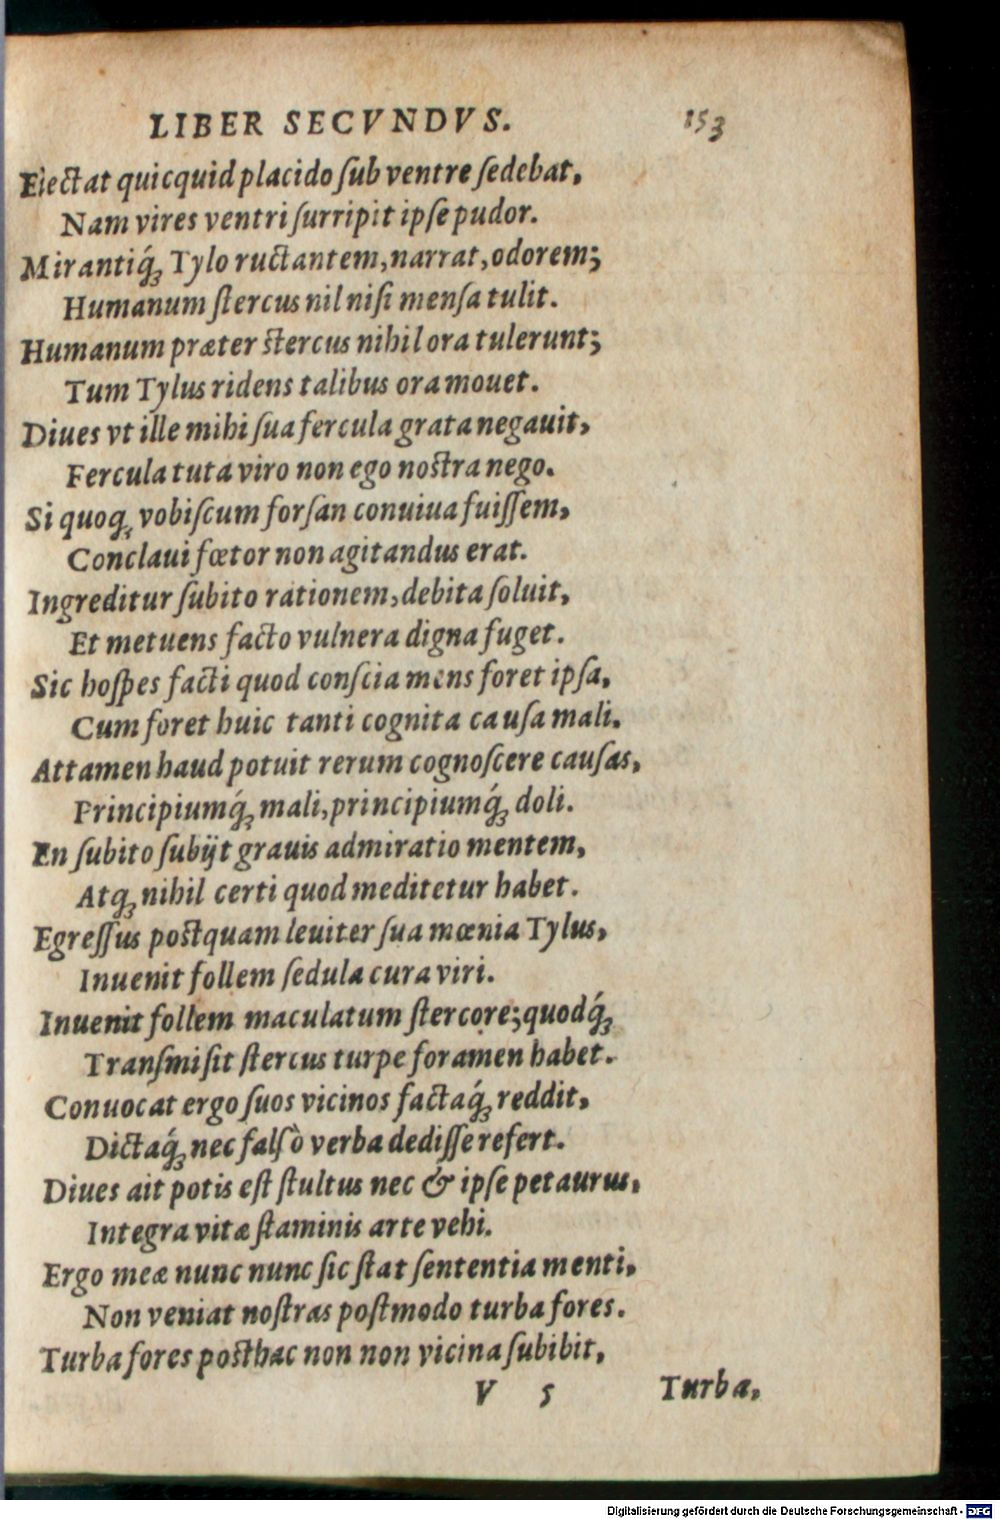 LIBER SECVNDVS. 153
Eiectat quicquid placido ſub ventre ſedebat,
Nam vires ventri ſurripit ipſe pudor.
Mirantiq́ꝫ Tylo ructantem, narrat, odorem;
Humanum ſtercus nil niſi menſa tulit.
Humanum præter ſtercus nihil ora tulerunt;
Tum Tylus ridens talibus ora mouet.
Diues vt ille mihi ſua fercula grata negauit,
Fercula tuta viro non ego noſtra nego.
Si quoqꝫ vobiſcum forſan conuiua fuiſſem,
Conclaui fœtor non agitandus erat.
Ingreditur ſubito rationem, debita ſoluit,
Et metuens facto vulnera digna fuget.
Sic hoſpes facti quod conſcia mens foret ipſa,
Cum foret huic tanti cognita cauſa mali.
Attamen haud potuit rerum cognoſcere cauſas,
Principiumq́ꝫ mali, principiumq́ꝫ doli.
En ſubito ſubijt grauis admiratio mentem,
Atqꝫ nihil certi quod meditetur habet.
Egreſſus poſtquam leuiter ſua mœnia Tylus,
Inuenit follem ſedula cura viri.
Inuenit follem maculatum ſtercore; quodq́ꝫ
Tranſmiſit ſtercus turpe foramen habet.
Conuocat ergo ſuos vicinos factaq́ꝫ reddit,
Dictaq́ꝫ nec falſò verba dediſſe refert.
Diues ait potis eſt ſtultus nec & ipſe petaurus,
Integra vitæ ſtaminis arte vehi.
Ergo meæ nunc nunc ſic ſtat ſententia menti,
Non veniat noſtras poſtmodo turba fores.
Turba fores poſthac non non vicina ſubibit,
V 5 Turba,
Digitalisierung gefördert durch die Deutsche Forschungsgemeinschaft - DFG